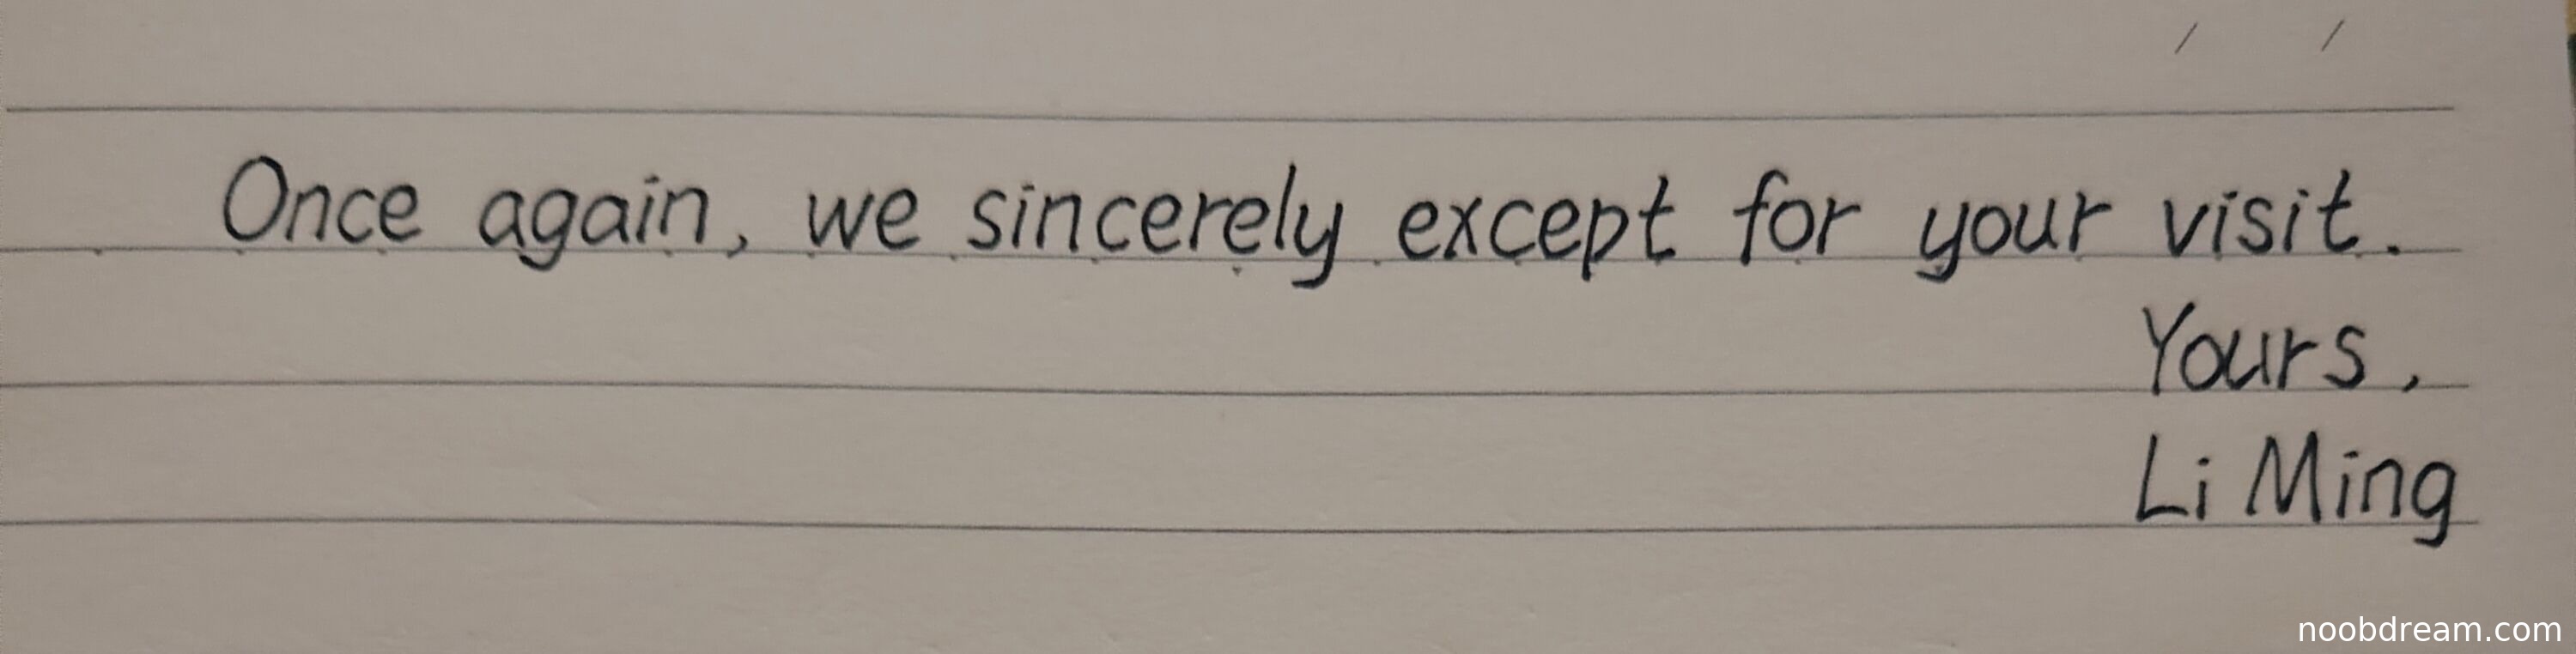 Once again, we sincerely except for your visit.
Yours,
Li Ming
noobdream.com